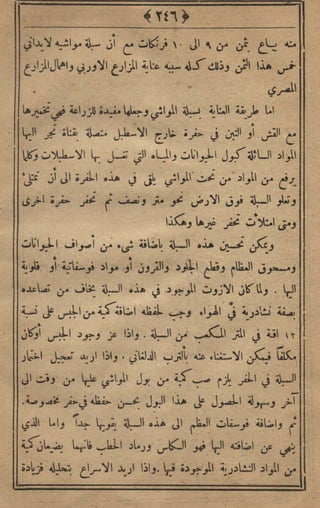 ﴿٢٤٦﴾
منه يباع بثمن من ٩ الى ١٠ فرنكات مع أن سبلة مواشيه لايدانى
خمس هذا الثمن وذلك كله سببه عناية المزارع الاوربي واهمال المزارع
المصري
اما طريقة العناية بسبلة المواشي وجعلها مفيدة للزراعة فهي تخميرها
مع القش أو التبن في حفرة خارج الاسطبل متصلة بقناة تجر اليها
المواد السائلة كبول الحيوانات والمياه التي تغسل بها الاسطبلات وكلما
يرفع من المواد من تحت المواشي يلقى في هذه الحفرة الى أن تمتلئ
وتعلو السبلة فوق الارض نحو متر ونصف ثم تحفر حفرة اخرى
ومتى امتلأت تحفر غيرها وهكذا
ويمكن تحسين هذه السبلة باضافة شيء من أصواف الحيوانات
ومسحوق العظام وقطع الجلود والقرون أو مواد فوسفاتية أو قلوية
اليها . ولما كان الازوت الموجود في هذه السبلة يخاف من تصاعده
بصفة نشادرية في الهواء وجب لحفظه اضافة كمية من الجبس على نسبة
١٢ اقة في المتر المكعب من السبلة . واذا عز وجود الجبس أو كان
مكلفاً فيمكن الاستغناء عنه بالترب الدلغاني . واذا اريد تعجيل اختمار
السبلة في الحفر يلزم صب كمية من بول المواشي عليها من وقت الى
آخر وسهولة الحصول على هذا البول يحسن حفظه في حفر مخصوصة .
ثم واضافة فوسفات العظم الى هذه السبلة يقويها جداً واما الذي
ينهي عن اضافته اليها فهو الكلس ورماد الحطب فانهما يضيعان كمية
من المواد النشادرية الموجودة فيها . واذا اريد الاسراع بتحليله فزيادة